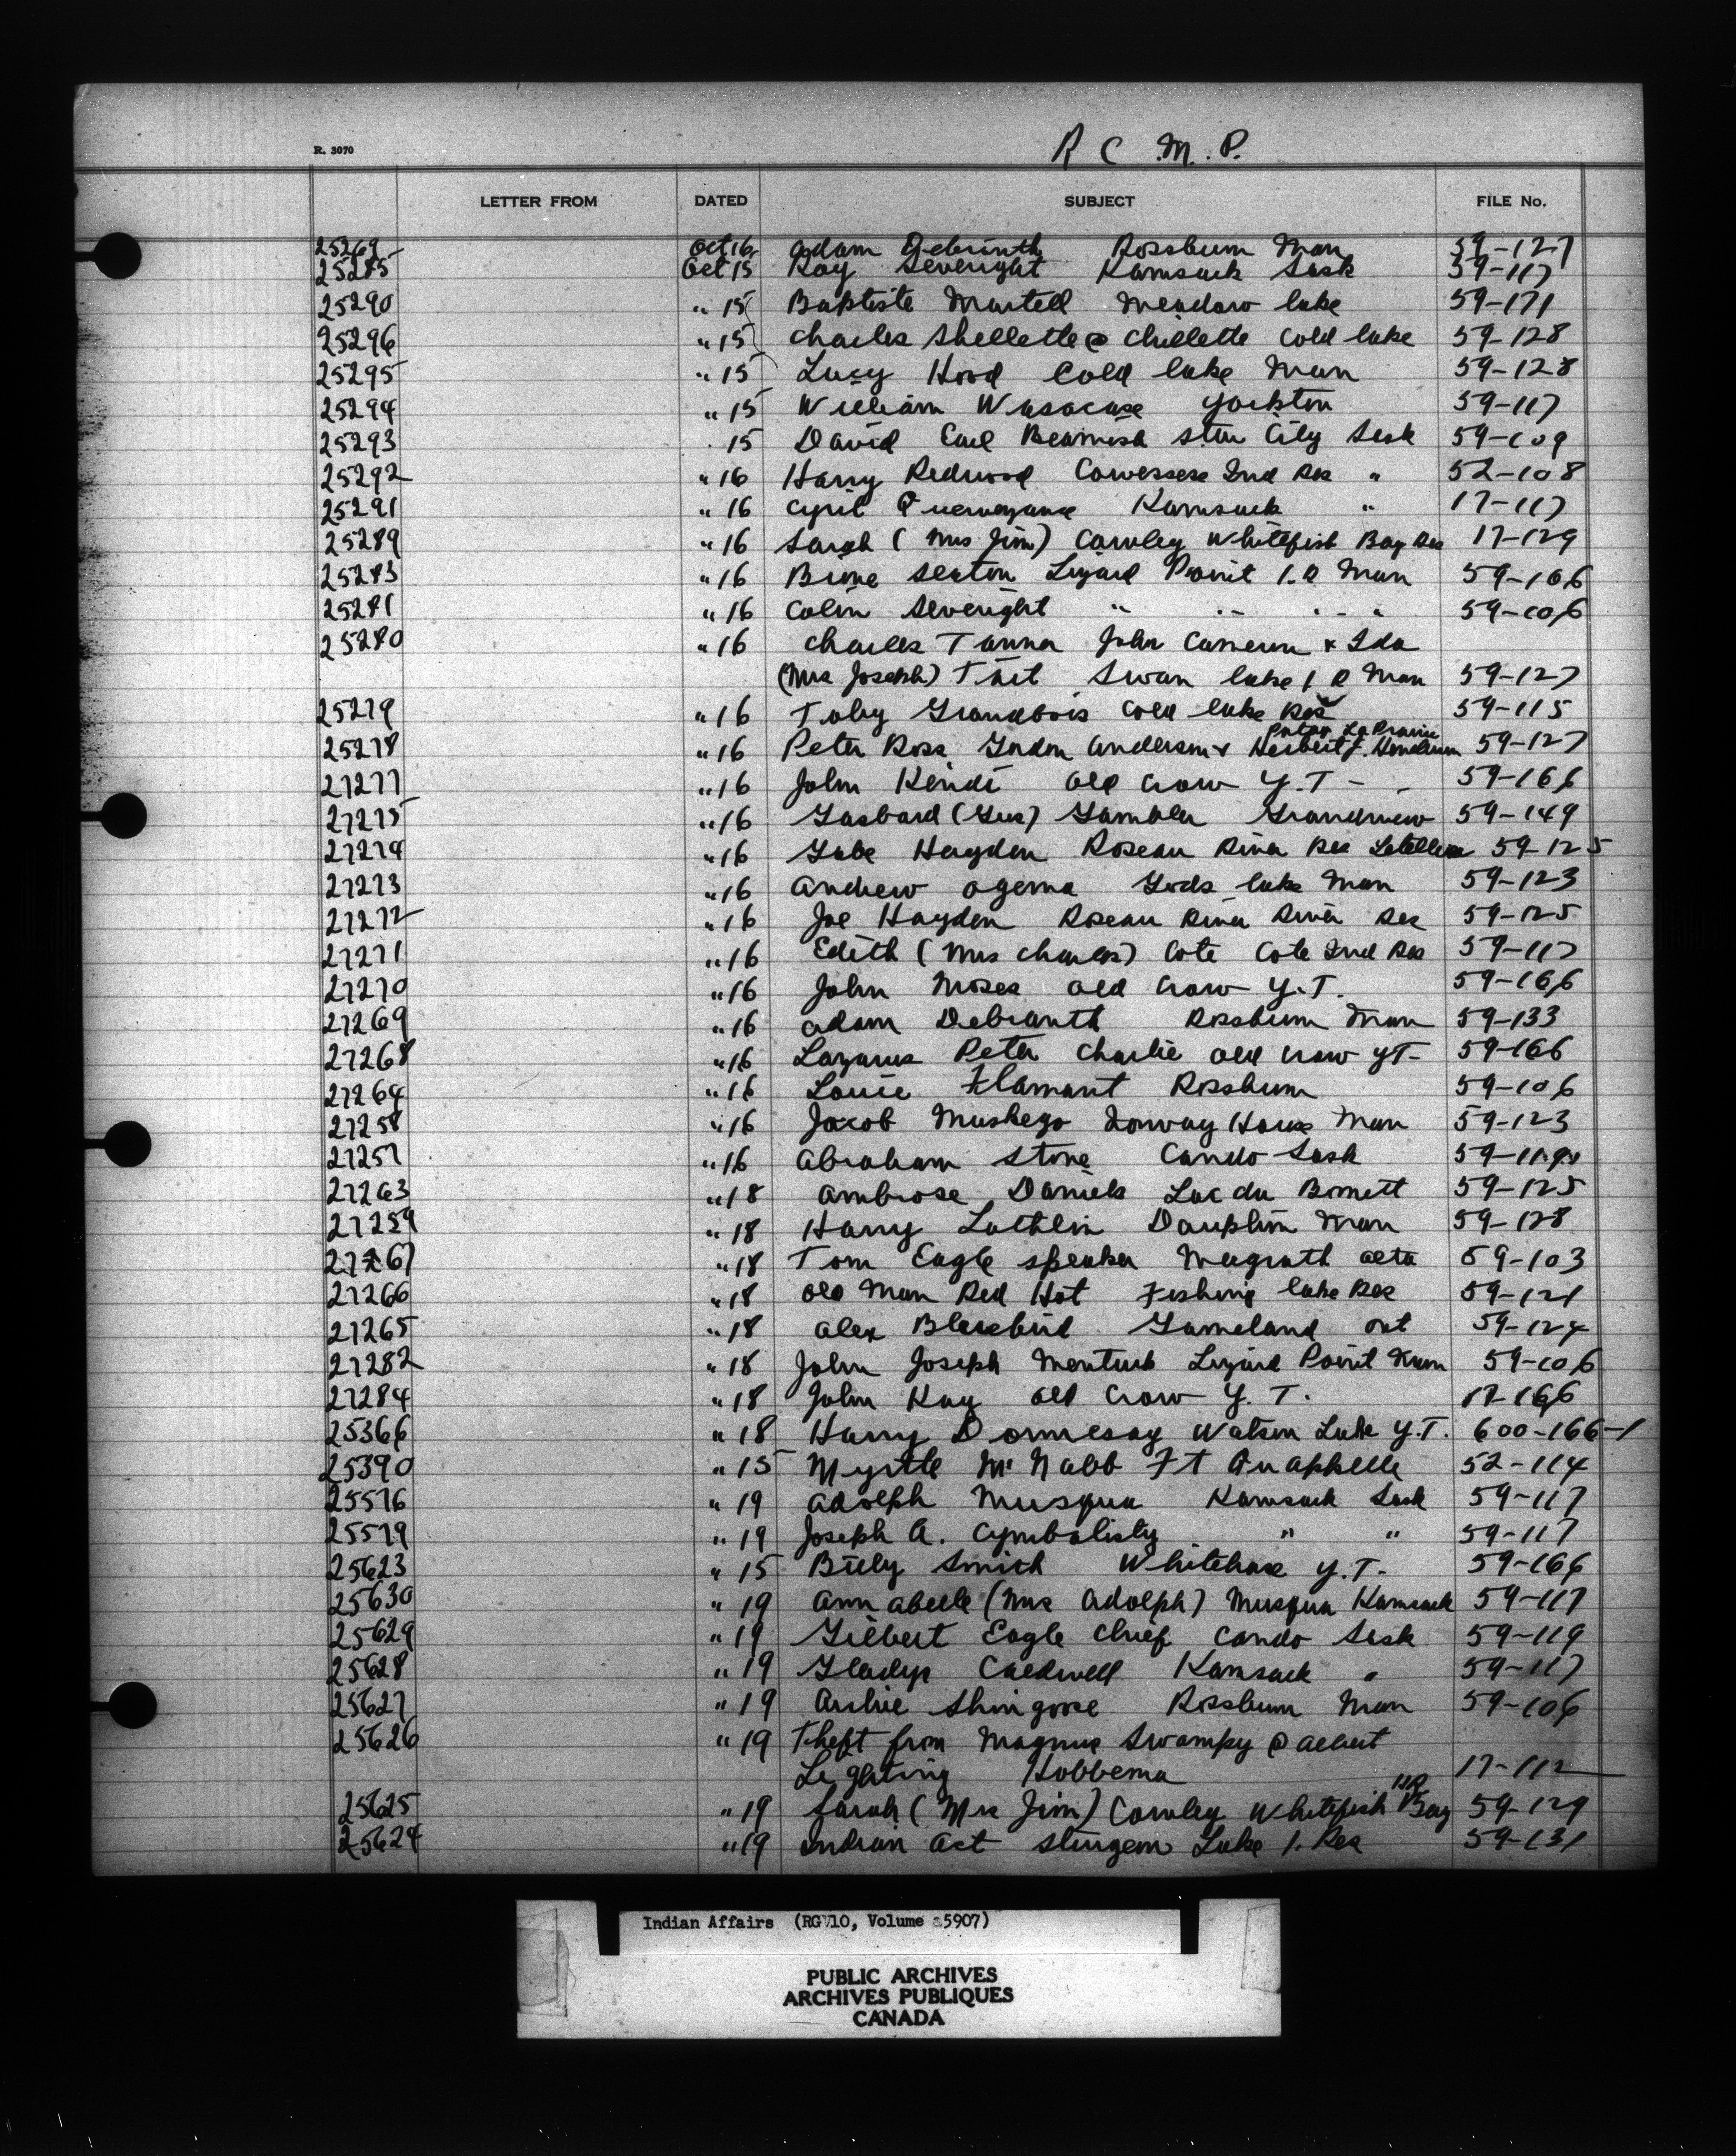 R. 3070
R C .M. P.
LETTER FROM DATED SUBJECT FILE No.
25269 Oct 16 Adam Rossburn Man 59-127
25285 Oct 15 Ray Severight Kamsack Sask 59-117
25290 " 15 Baptiste Martell Meadow lake 59-171
25296 " 15 Charles Shellette @ Chellette Cold lake 59-128
25295 " 15 Lucy Hood Cold lake Man 59-128
25294 " 15 William Wasacase Yorkton 59-117
25293 15 David Earl Beamish Star City Sask 59-109
25292 " 16 Harry Redwood Cowessess Ind Res " 52-108
25291 " 16 Cyril Kamsack " 17-117
25289 " 16 Sarah (Mrs Jim) Cowley Whitefish Bay Res 17-129
25283 " 16 Seaton Lizard Point I.R Man 59-106
25281 " 16 Colin Severight " " " " 59-106
25280 " 16 Charles Tanner John Cameron & Ida
(Mrs Joseph) Tait Swan lake I R Man 59-127
25279 " 16 Toby Grandbois Cold lake Res 59-115
Patap La Prairie
25278 " 16 Peter Ross Gordon Anderson & Herbert J. Henderson 59-127
27277 " 16 John Kendi Old Crow Y.T - 59-166
27275 " 16 Gasbard (Gus) Gambler Grandview 59-149
27274 " 16 Gabe Hayden Roseau River Res Letellier 59-125
27273 " 16 Andrew Ogema Gods lake Man 59-123
27272 " 16 Joe Hayden Roseau River River Res 59-125
27271 " 16 Edith (Mrs Charles) Cote Cote Ind Res 59-117
27270 " 16 John Moses Old Crow Y.T. 59-166
27269 " 16 Adam Debranth Rossburn Man 59-133
27268 " 16 Lazarus Peter Charlie Old Crow YT- 59-166
27264 " 16 Louie Flamant Rossburn 59-106
27258 " 16 Jacob Muskego Norway House Man 59-123
27257 " 16 Abraham Stone Cando Sask
27263 " 18 Ambrose Daniels Lac du Bonnett 59-125
27259 " 18 Harry Lathlin Dauphin Man 59-128
27267 " 18 Tom Eagle speaker Magrath Alta 59-103
27266 " 18 Old Man Red Hot Fishing lake Res 59-121
27265 " 18 Alex Blackbird Gameland Ont 59-124
27282 " 18 John Joseph Mentuck Lizard Point Man 59-106
27284 " 18 John Kay Old Crow Y. T. 17-166
25366 " 18 Harry Dormesay Watson Lake Y.T. 600-166-1
25390 " 15 Myrtle McNabb Ft Quappelle 52-114
25576 " 19 Adolph Musqua Kamsack Sask 59-117
25579 " 19 Joseph A. Cymbalisty " " 59-117
25623 " 15 Billy Smith Whitehorse Y.T. 59-166
25630 " 19 Annabelle (Mrs Adolph) Musqua Kamsack 59-117
25629 " 19 Gilbert Eagle Chief Cando Sask 59-119
25628 " 19 Gladys Caldwell Kamsack " 59-117
25627 " 19 Archie Shingoose Rossburn Man 59-106
25626 " 19 Theft from Magnus Swampy @ Albert
Lightning Hobbema 17-112
25625 " 19 Sarah (Mrs Jim) Cowley Whitefish Bay IR 59-129
25624 " 19 Indian Act Sturgeon Lake I. Res 59-131
Indian Affairs (RG 10, Volume 5907)
PUBLIC ARCHIVES
ARCHIVES PUBLIQUES
CANADA